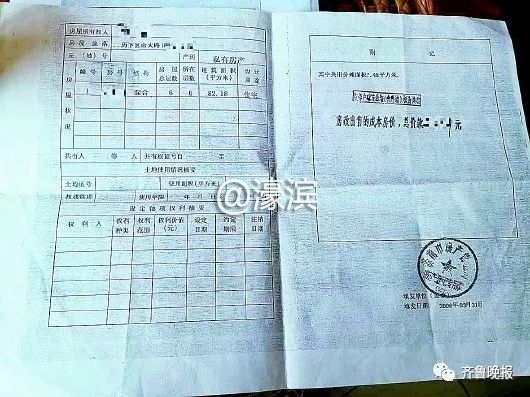 房屋所有权人
房屋坐落 历下区山大路
丘（地）号 产别 私有房产
房屋状况 幢号 房号 结构 房屋总层数 所在层数 建筑面积（平方米） 设计用途
混合 6 6 82.18 住宅
共有人 等 人 共有权证号自 至
土地使用情况摘要
土地证号 使用面积（平方米）
权属性质 使用年限 年 月
设定他项权利摘要
权利人 权利种类 权利范围 权利价值（元） 设定日期 约定期限 注销日期
附记
其中共用分摊面积7.48平方米。
房改出售的成本房价，总价款 元
填发单位（盖章）
填发日期：
@濠滨
齐鲁晚报